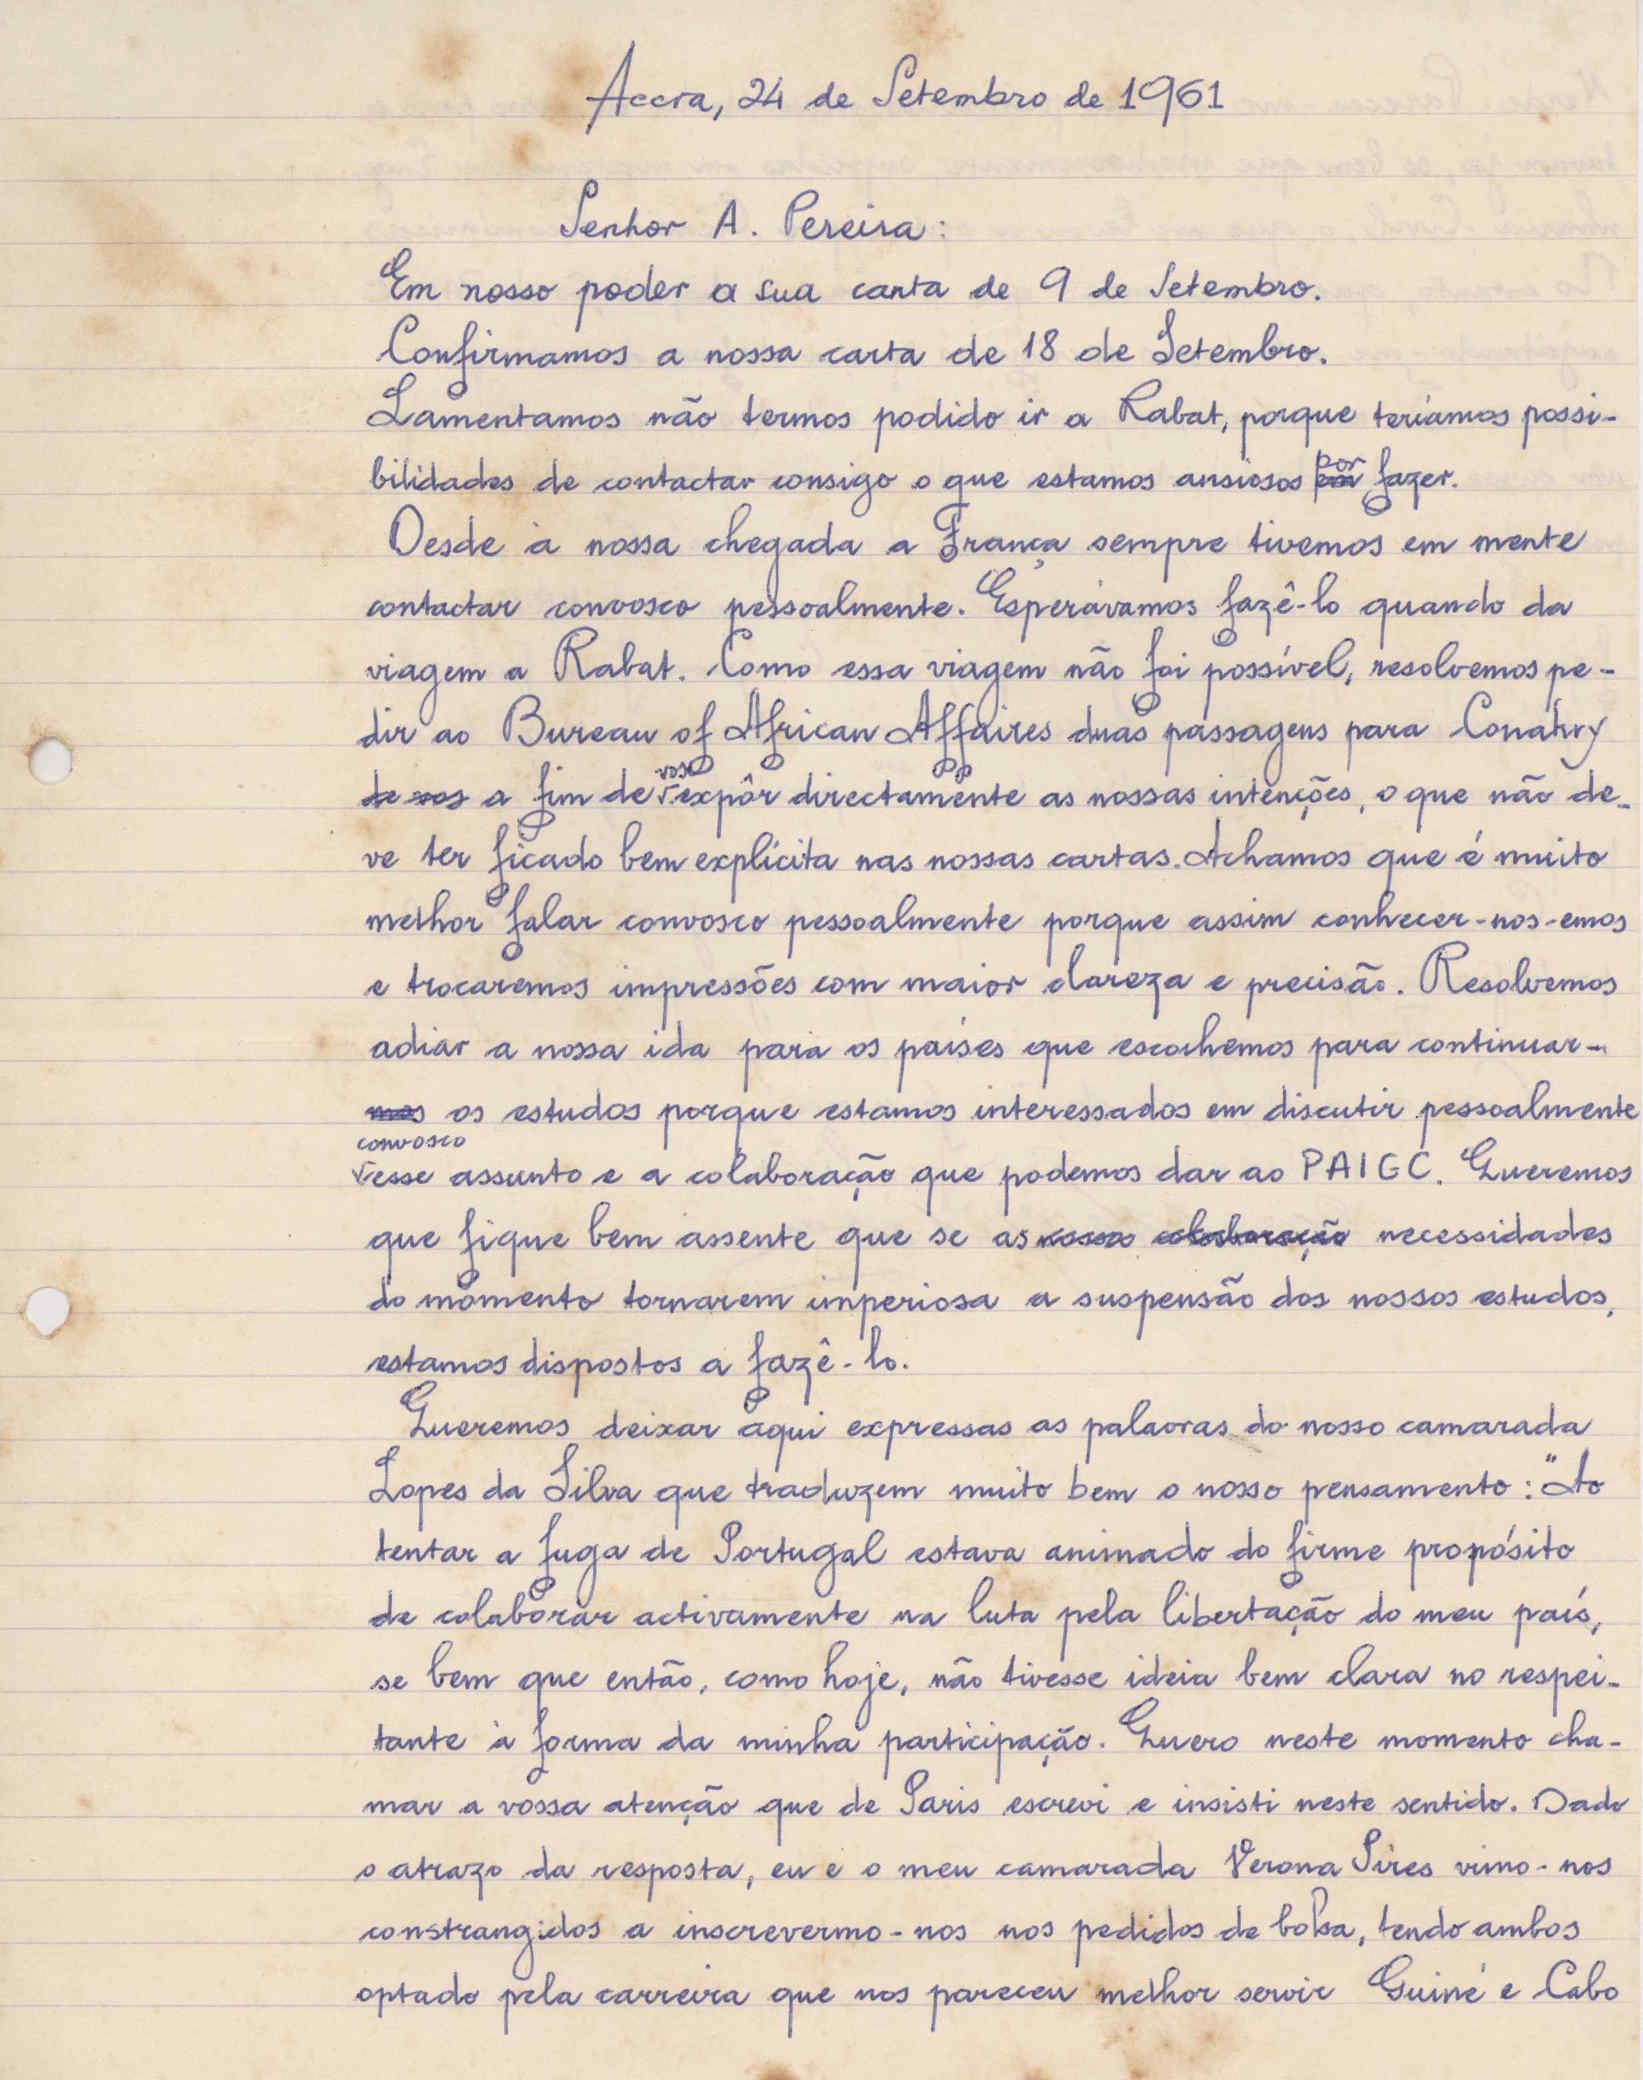 Accra, 24 de Setembro de 1961
Senhor A. Pereira:
Em nosso poder a sua carta de 9 de Setembro.
Confirmamos a nossa carta de 18 de Setembro.
Lamentamos não termos podido ir a Rabat, porque teríamos possi-
bilidades de contactar consigo o que estamos ansiosos por fazer.
Desde a nossa chegada a França sempre tivemos em mente
contactar convosco pessoalmente. Esperávamos fazê-lo quando da
viagem a Rabat. Como essa viagem não foi possível, resolvemos pe-
dir ao Bureau of African Affaires duas passagens para Conakry
de vos a fim de vos expôr directamente as nossas intenções, o que não de-
ve ter ficado bem explícita nas nossas cartas. Achamos que é muito
melhor falar convosco pessoalmente porque assim conhecer-nos-emos
e trocaremos impressões com maior clareza e precisão. Resolvemos
adiar a nossa ida para os países que escolhemos para continuar-
mos os estudos porque estamos interessados em discutir pessoalmente
convosco
esse assunto e a colaboração que podemos dar ao PAIGC. Queremos
que fique bem assente que se as nossa colaboração necessidades
do momento tornarem imperiosa a suspensão dos nossos estudos,
estamos dispostos a fazê-lo.
Queremos deixar aqui expressas as palavras do nosso camarada
Lopes da Silva que traduzem muito bem o nosso pensamento: "Ao
tentar a fuga de Portugal estava animado do firme propósito
de colaborar activamente na luta pela libertação do meu país,
se bem que então, como hoje, não tivesse ideia bem clara no respei-
tante à forma da minha participação. Quero neste momento cha-
mar a vossa atenção que de Paris escrevi e insisti neste sentido. Dado
o atrazo da resposta, eu e o meu camarada Verona Pires vimo-nos
constrangidos a inscrevermo-nos nos pedidos de bolsa, tendo ambos
optado pela carreira que nos pareceu melhor servir Guiné e Cabo